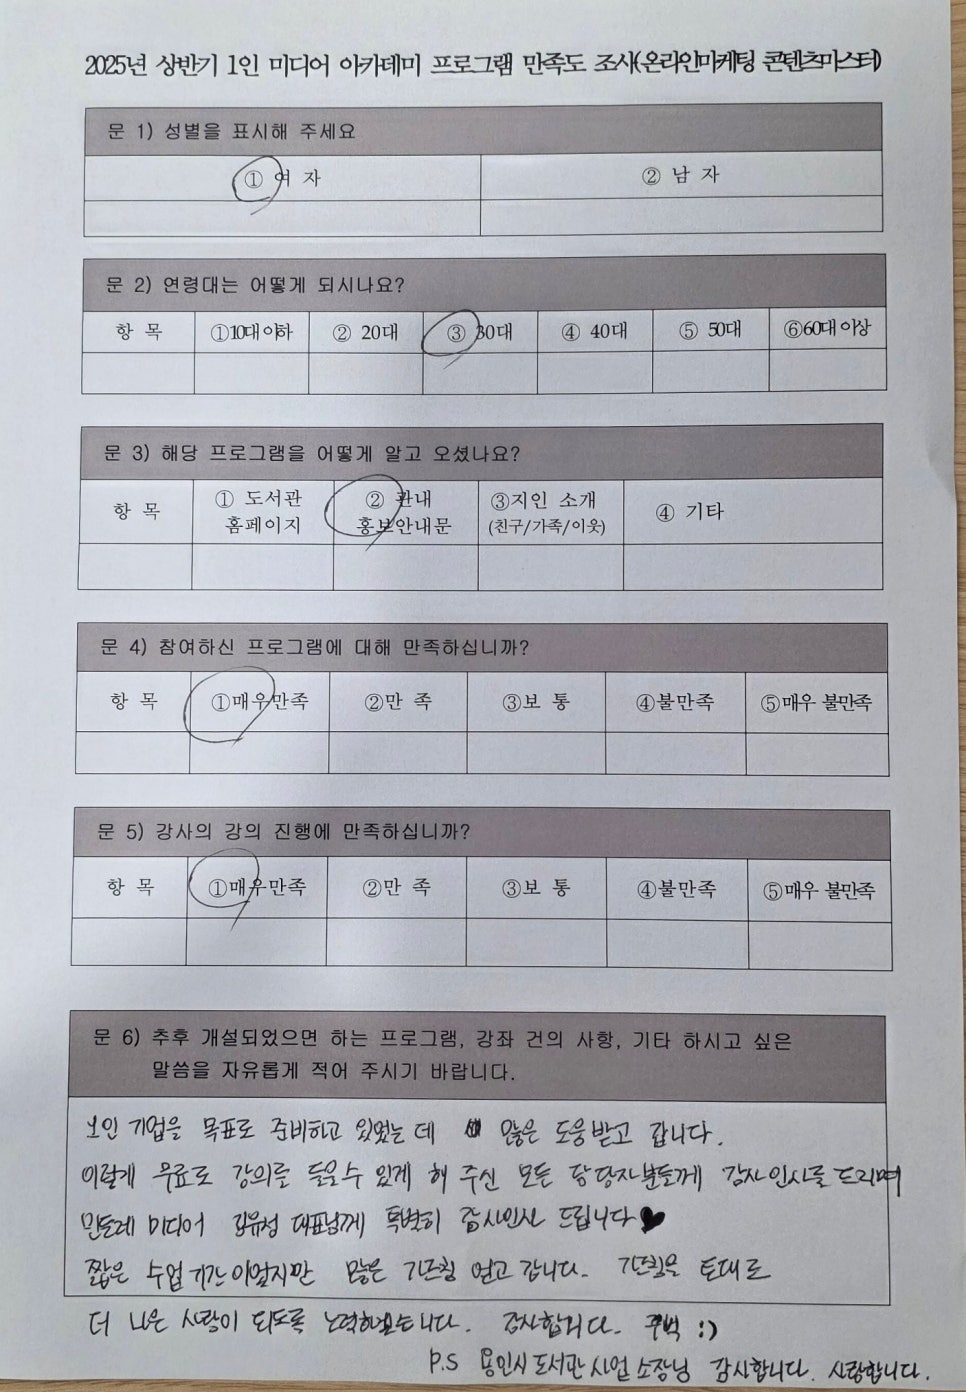 2025년 상반기 1인 미디어 아카데미 프로그램 만족도 조사(온라인마케팅 콘텐츠마스터)
문 1) 성별을 표시해 주세요
① 여 자 ② 남 자
문 2) 연령대는 어떻게 되시나요?
항 목 ①10대이하 ② 20대 ③ 30대 ④ 40대 ⑤ 50대 ⑥60대이상
문 3) 해당 프로그램을 어떻게 알고 오셨나요?
항 목 ① 도서관 홈페이지 ② 관내 홍보안내문 ③지인 소개 (친구/가족/이웃) ④ 기타
문 4) 참여하신 프로그램에 대해 만족하십니까?
항 목 ①매우만족 ②만 족 ③보 통 ④불만족 ⑤매우 불만족
문 5) 강사의 강의 진행에 만족하십니까?
항 목 ①매우만족 ②만 족 ③보 통 ④불만족 ⑤매우 불만족
문 6) 추후 개설되었으면 하는 프로그램, 강좌 건의 사항, 기타 하시고 싶은
말씀을 자유롭게 적어 주시기 바랍니다.
1인 기업을 목표로 준비하고 있었는데 많은 도움받고 갑니다.
이렇게 무료로 강의를 들을수 있게 해 주신 모든 담당자분들께 감사인사를 드리며
민들레 미디어 김유성 대표님께 특별히 감사인사 드립니다♥
짧은 수업기간이었지만 많은 가르침 얻고 갑니다. 가르침을 토대로
더 나은 사람이 되도록 노력하겠습니다. 감사합니다. 꾸벅 :)
P.S 용인시 도서관 사업 소장님 감사합니다. 사랑합니다.